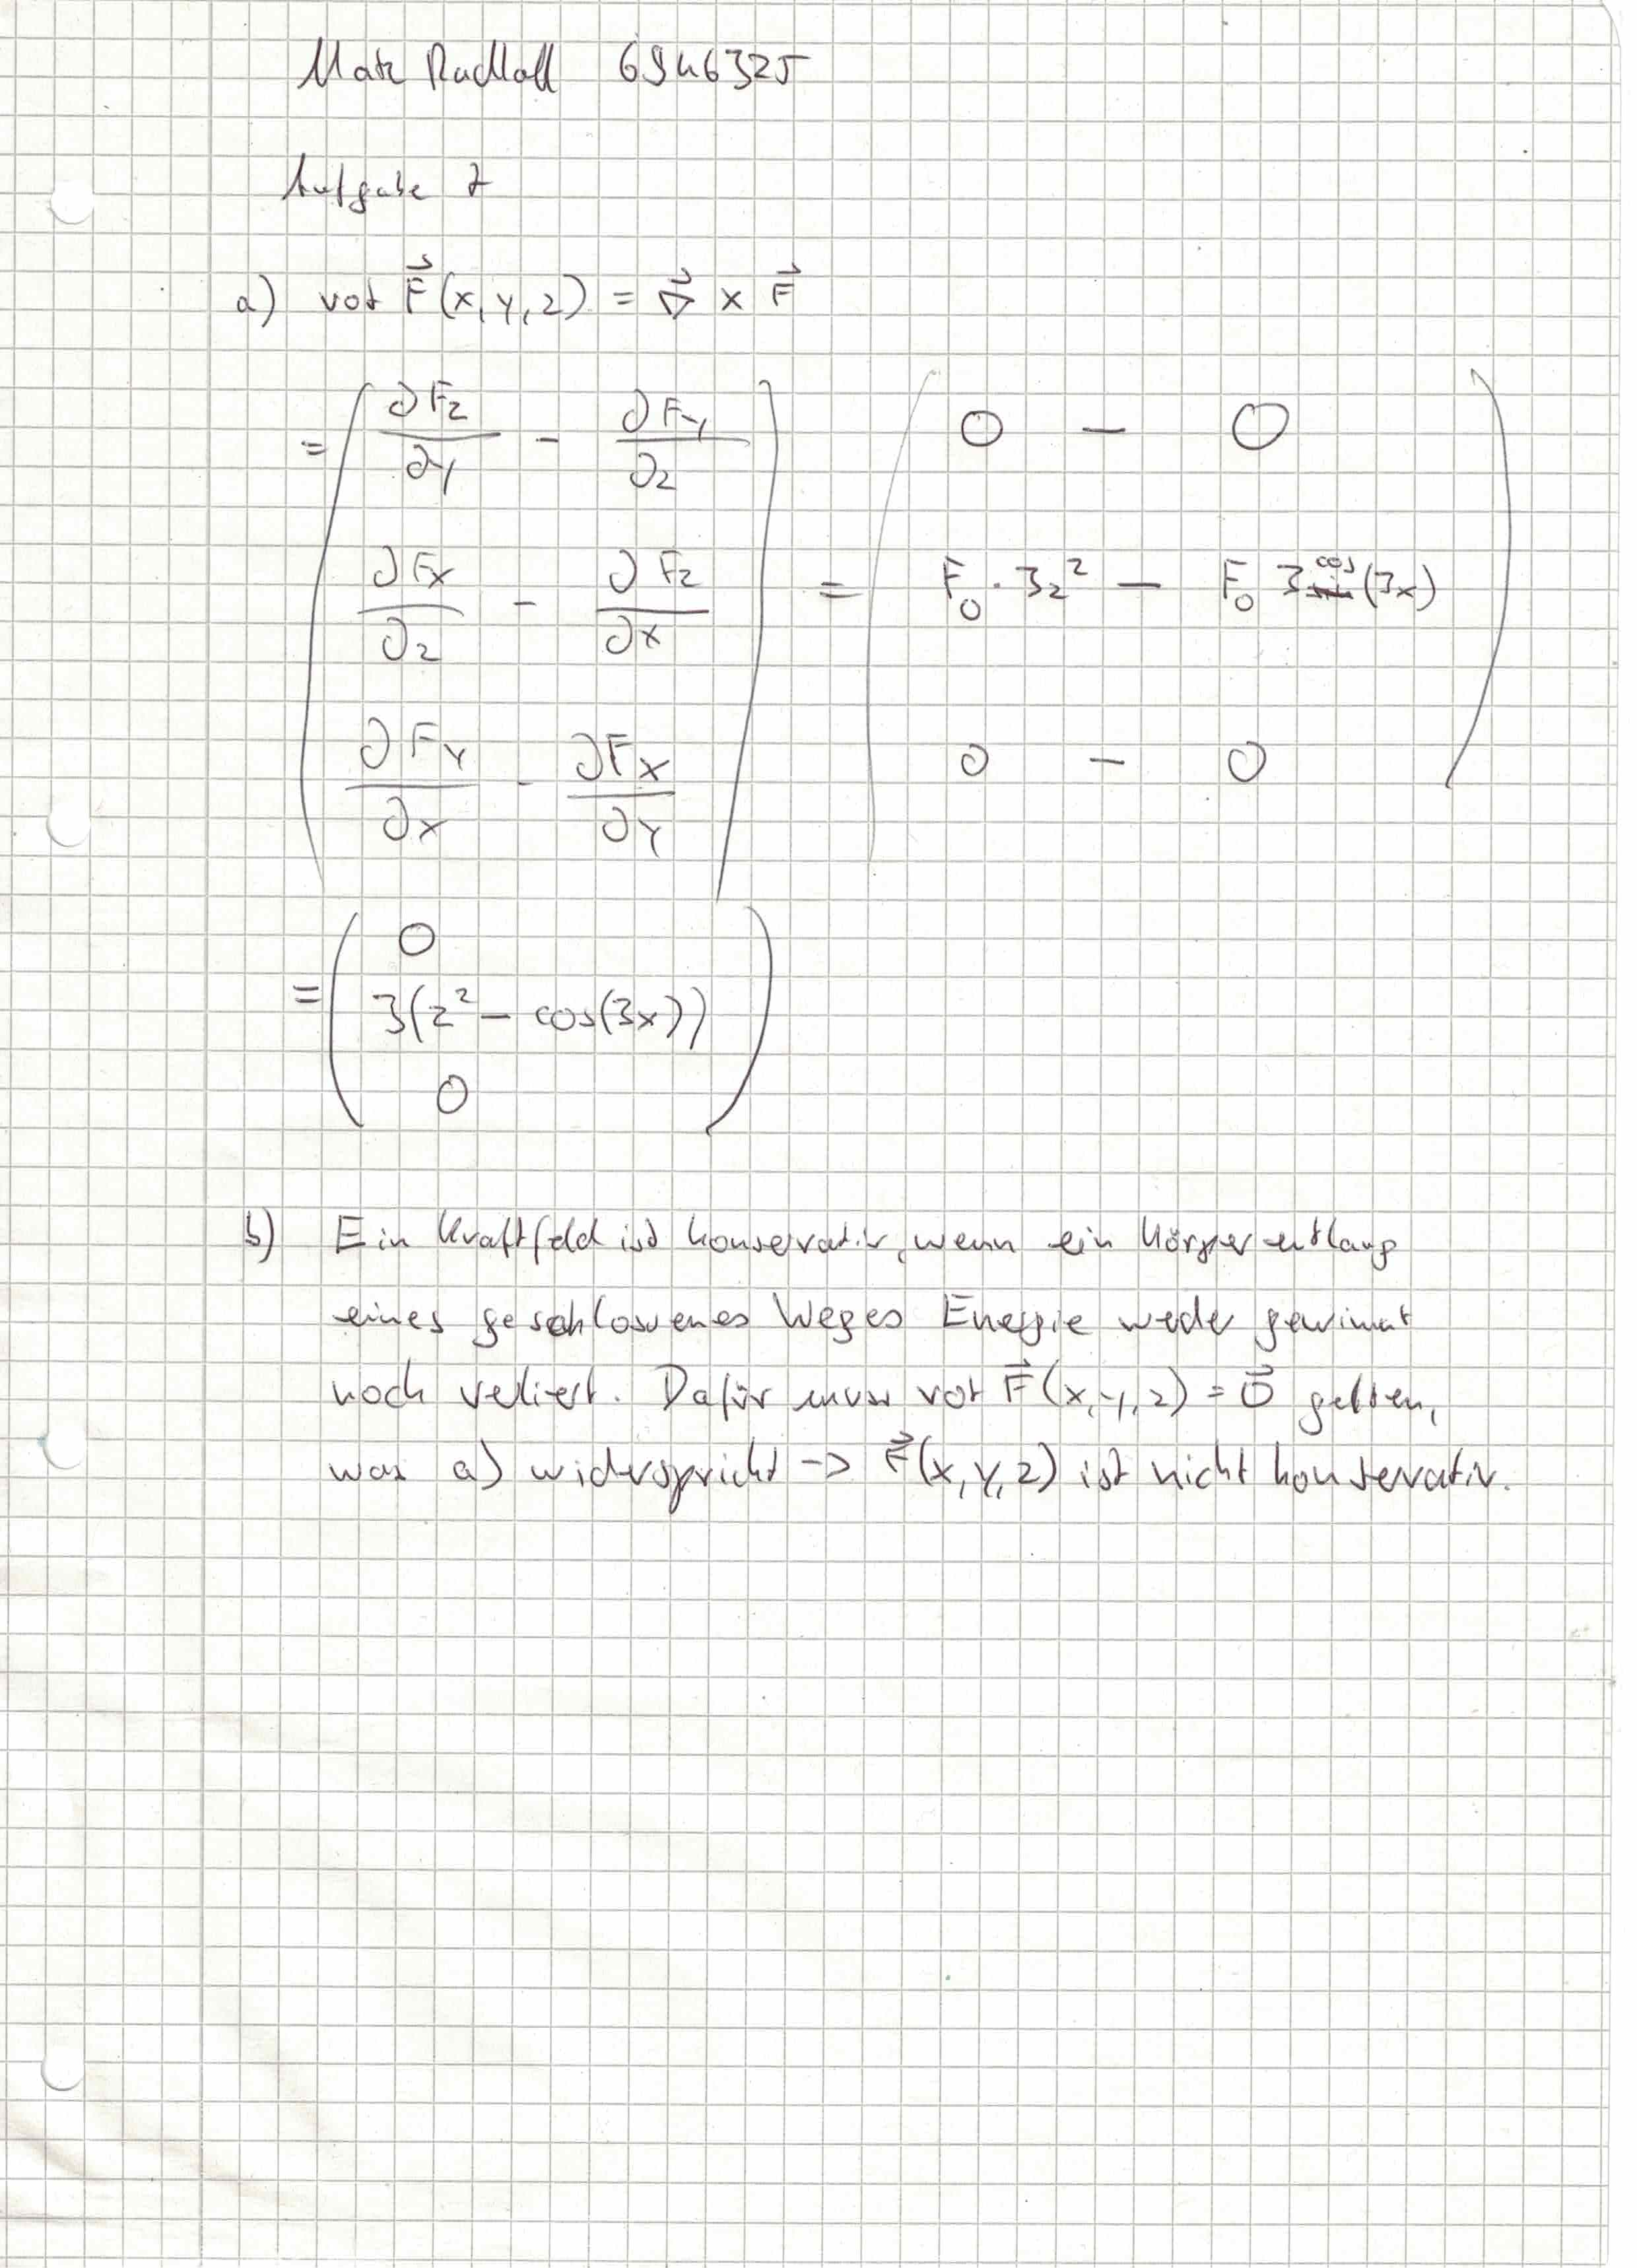 6946325
Aufgabe 7
a) rot F⃗(x,y,z) = ∇⃗ × F⃗
= ( ∂Fz/∂y - ∂Fy/∂z ) = ( 0 - 0 )
( ∂Fx/∂z - ∂Fz/∂x ) = ( F₀ · 3z² - F₀ 3 cos(3x) )
( ∂Fy/∂x - ∂Fx/∂y ) ( 0 - 0 )
= ( 0
3(z² - cos(3x))
0 )
b) Ein Kraftfeld ist konservativ, wenn ein Körper entlang
eines geschlossenes Weges Energie weder gewinnt
noch verliert. Dafür muss rot F⃗(x,y,z) = 0⃗ gelten,
was a) widerspricht -> F⃗(x,y,z) ist nicht konservativ.